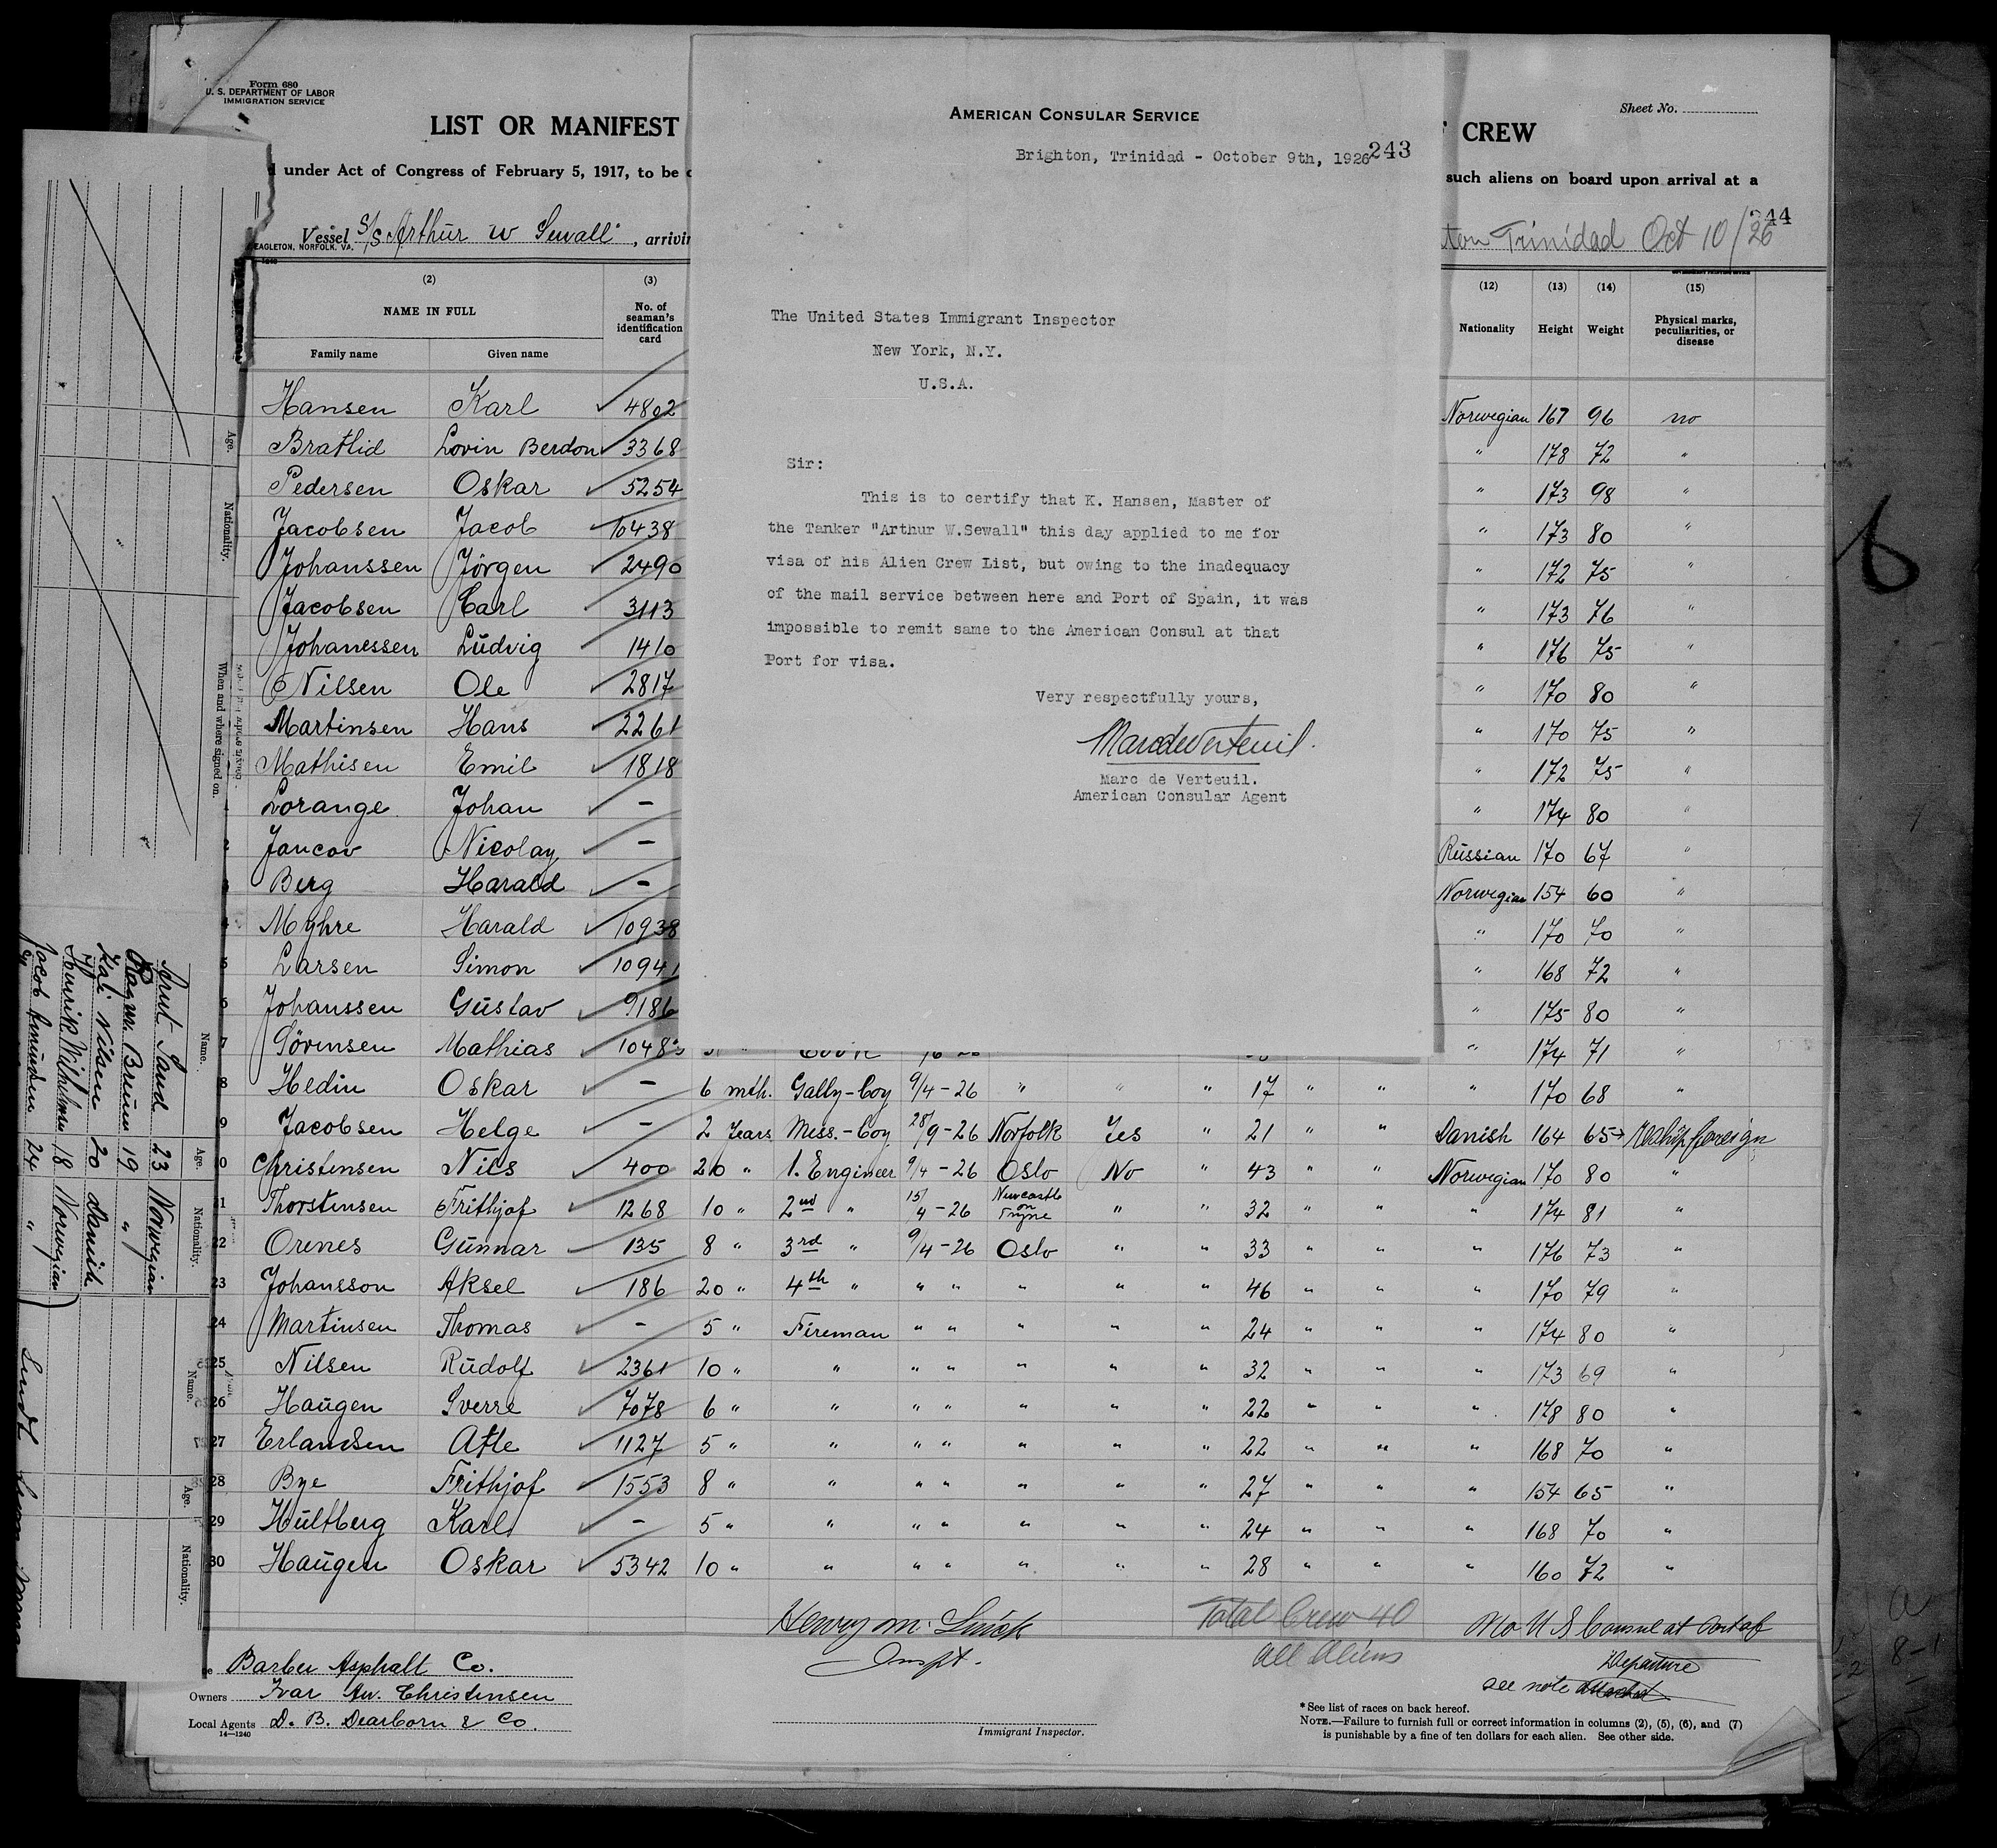 Form 680
U. S. DEPARTMENT OF LABOR
IMMIGRATION SERVICE
LIST OR MANIFEST
CREW
Sheet No.
under Act of Congress of February 5, 1917, to be
such aliens on board upon arrival at a
EAGLETON, NORFOLK, VA.
Vessel S/S Arthur W Sewall, arrivin
Trinidad Oct 10/26
244
AMERICAN CONSULAR SERVICE
Brighton, Trinidad - October 9th, 1926
243
The United States Immigrant Inspector
New York, N.Y.
U.S.A.
Sir:
This is to certify that K. Hansen, Master of
the Tanker "Arthur W.Sewall" this day applied to me for
visa of his Alien Crew List, but owing to the inadequacy
of the mail service between here and Port of Spain, it was
impossible to remit same to the American Consul at that
Port for visa.
Very respectfully yours,
Marc de Verteuil.
Marc de Verteuil.
American Consular Agent
(2) (3) (12) (13) (14) (15)
NAME IN FULL
Family name Given name
No. of seaman's identification card
Nationality Height Weight Physical marks, peculiarities, or disease
Hansen Karl 4802 Norwegian 167 96 no
Bratlid Lovin Berdon 3368 " 178 72 "
Pedersen Oskar 5254 " 173 98 "
Jacobsen Jacob 10438 " 173 80 "
Johanssen Jörgen 2490 " 172 75 "
Jacobsen Carl 3113 " 173 76 "
Johanessen Ludvig 1410 " 176 75 "
Nilsen Ole 2817 " 170 80 "
Martinsen Hans 2261 " 170 75 "
Mathisen Emil 1818 " 172 75 "
Lorange Johan - " 174 80 "
Jancov Nicolay - Russian 170 67 "
Berg Harald - Norwegian 154 60 "
Myhre Harald 10938 " 170 70 "
Larsen Simon 10941 " 168 72 "
Johanssen Gustav 9186 " 175 80 "
7 Sörensen Mathias " 174 71 "
8 Hedin Oskar - 6 mth. Gally-boy 9/4-26 " " " 17 " " " 170 68 "
9 Jacobsen Helge - 2 Years Mess.-boy 28/9-26 Norfolk Yes " 21 " " Danish 164 65 Reship foreign
0 Christensen Nils 400 20 " 1. Engineer 9/4-26 Oslo No " 43 " " Norwegian 170 80 "
21 Thorstensen Frithjof 1268 10 " 2nd " 15/4-26 Newcastle on Tyne " " 32 " " " 174 81 "
22 Orenes Gunnar 135 8 " 3rd " 9/4-26 Oslo " " 33 " " " 176 73 "
23 Johansson Aksel 186 20 " 4th " " " " " " 46 " " " 170 79 "
24 Martinsen Thomas - 5 " Fireman " " " " " 24 " " " 174 80 "
25 Nilsen Rudolf 2361 10 " " " " " " " 32 " " " 173 69 "
26 Haugen Sverre 7078 6 " " " " " " " 22 " " " 178 80 "
27 Erlandsen Atle 1127 5 " " " " " " " 22 " " " 168 70 "
28 Bye Frithjof 1553 8 " " " " " " " 27 " " " 154 65 "
29 Hultberg Karl - 5 " " " " " " " 24 " " " 168 70 "
30 Haugen Oskar 5342 10 " " " " " " " 28 " " " 160 72 "
Total Crew 40
All Aliens
No U S Consul at Port of
Departure
see note attached
Inspt.
Barber Asphalt Co.
Owners Ivar An. Christensen
Local Agents D. B. Dearborn & Co.
14—1240
Immigrant Inspector.
* See list of races on back hereof.
NOTE.—Failure to furnish full or correct information in columns (2), (5), (6), and (7)
is punishable by a fine of ten dollars for each alien. See other side.
Name. Age. Nationality. When and where signed on.
Sand 23 Norwegian
Bruun 19 "
Nilsen 20 Danish
Henrik Wilhelmsen 18 Norwegian
Jacob Amundsen 24 "
Name. Age. Nationality.